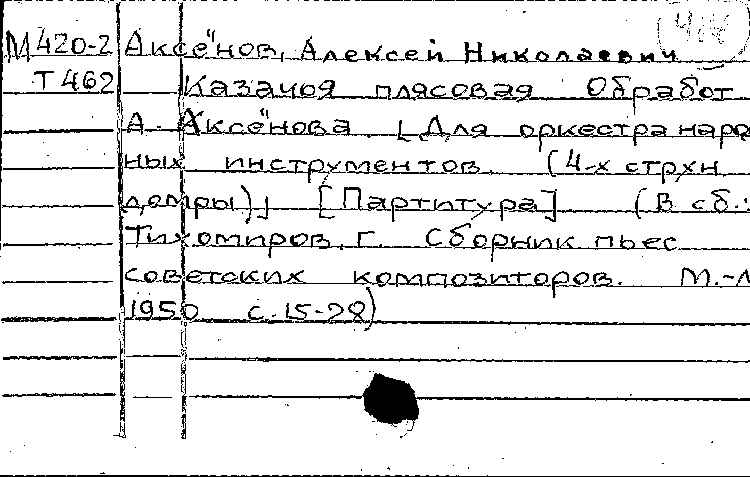 М420-2 Аксёнов, Алексей Николаевич
Т462 Казачья плясовая Обработ
А. Аксёнова. [Для оркестра наро
ных инструментов. (4-х струн
домры)] [Партитура] (В сб.:
Тихомиров, Г. Сборник пьес
советских композиторов. М.-Л
1950 с. 15-28)